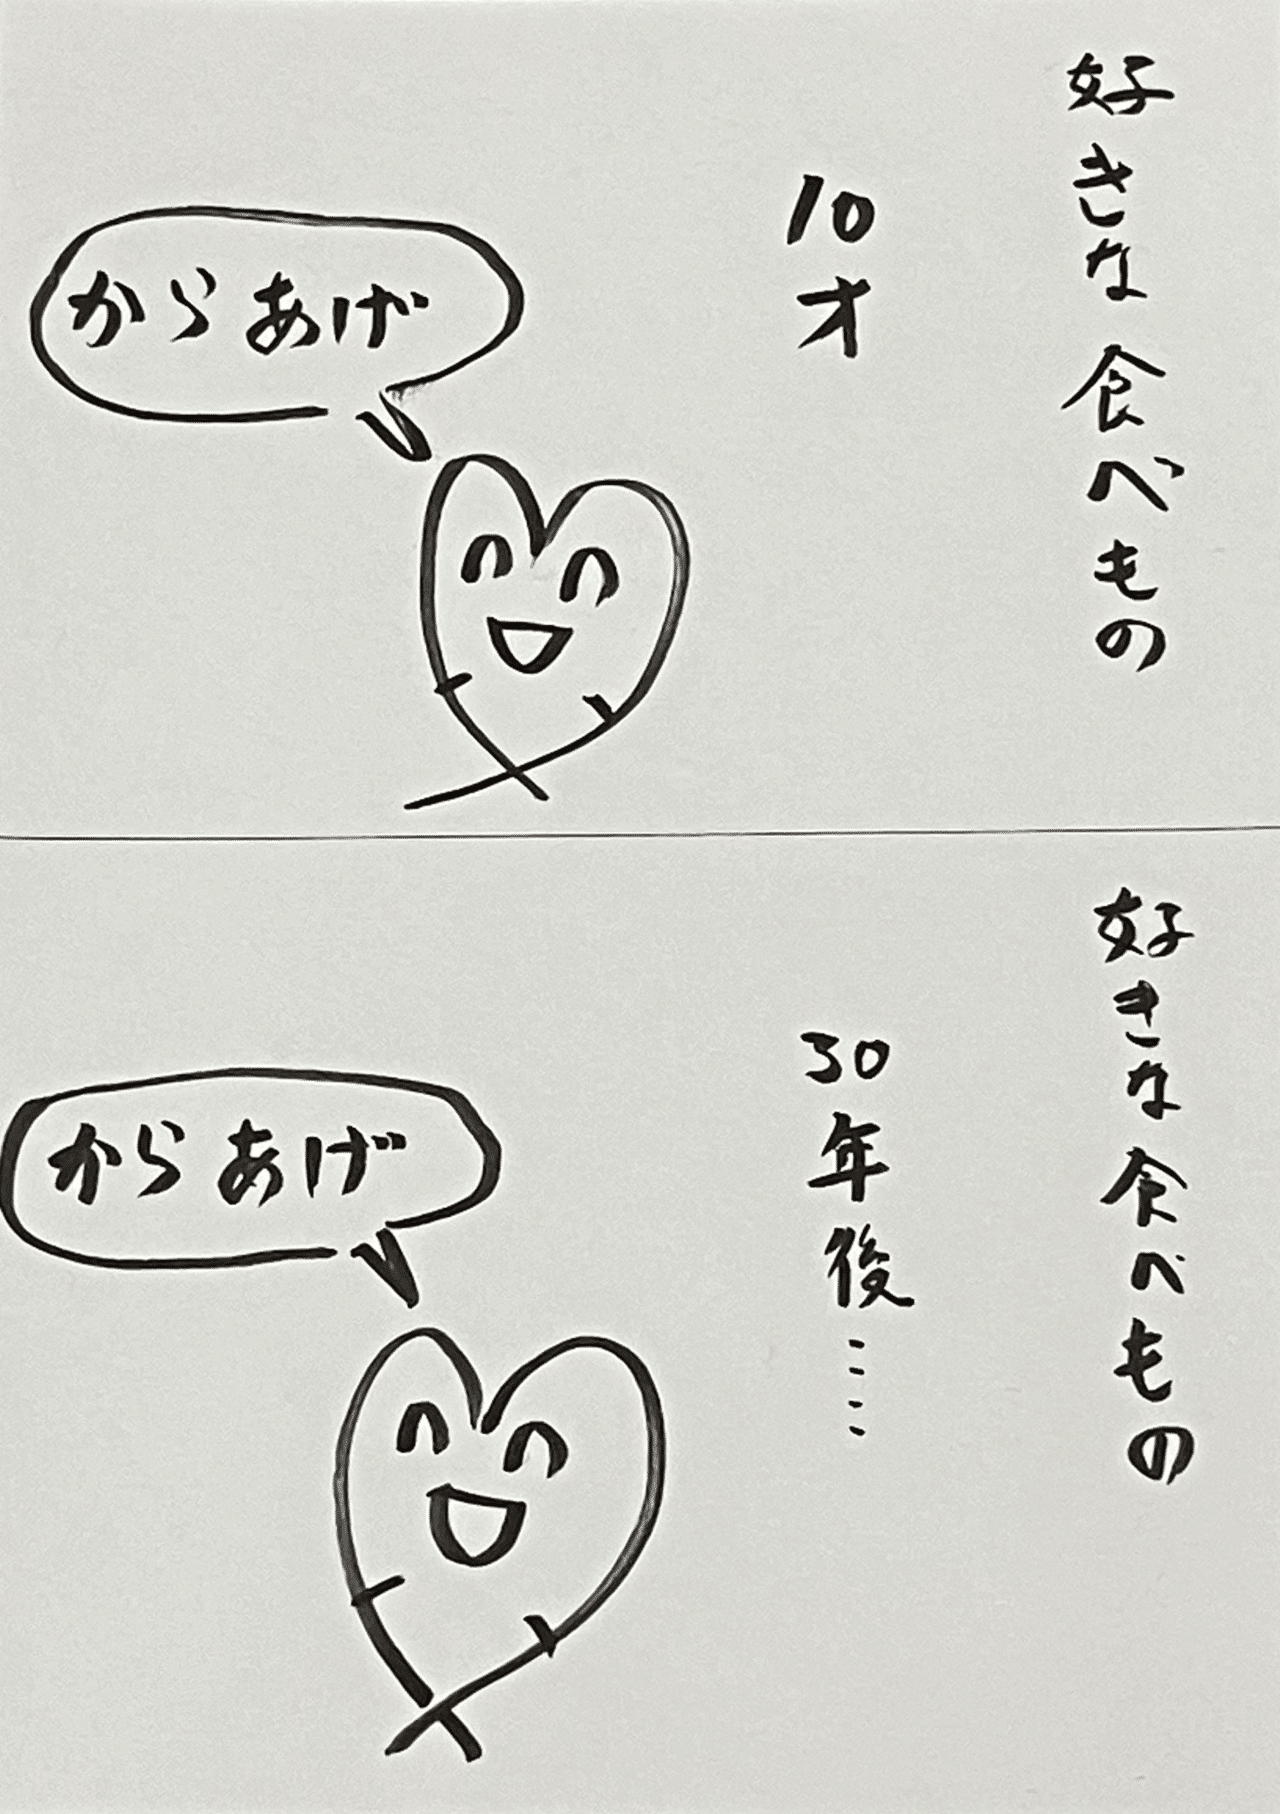 好きな食べもの
10才
からあげ
好きな食べもの
30年後……
からあげ